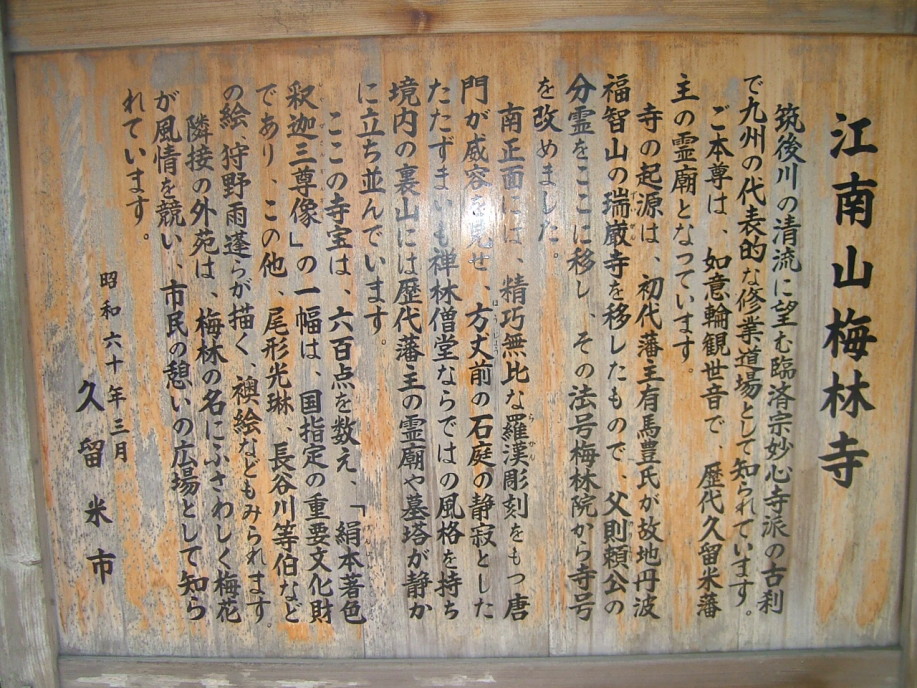 江南山梅林寺
筑後川の清流に望む臨済宗妙心寺派の古刹
で九州の代表的な修業道場として知られています。
ご本尊は、如意輪観世音で、歴代久留米藩
主の霊廟となっています。
寺の起源は、初代藩主有馬豊氏が故地丹波
福智山の瑞巌寺を移したもので、父則頼公の
分霊をここに移し、その法号梅林院から寺号
を改めました。
南正面には、精巧無比な羅漢彫刻をもつ唐
門が威容を見せ、方丈前の石庭の静寂とした
たたずまいも禅林僧堂ならではの風格を持ち
境内の裏山には歴代藩主の霊廟や墓塔が静か
に立ち並んでいます。
ここの寺宝は、六百点を数え、「絹本著色
釈迦三尊像」の一幅は、国指定の重要文化財
であり、この他、尾形光琳、長谷川等伯など
の絵、狩野雨蓬らが描く、襖絵などもみられます。
隣接の外苑は、梅林の名にふさわしく梅花
が風情を競い、市民の憩いの広場として知ら
れています。
昭和六十年三月
久留米市